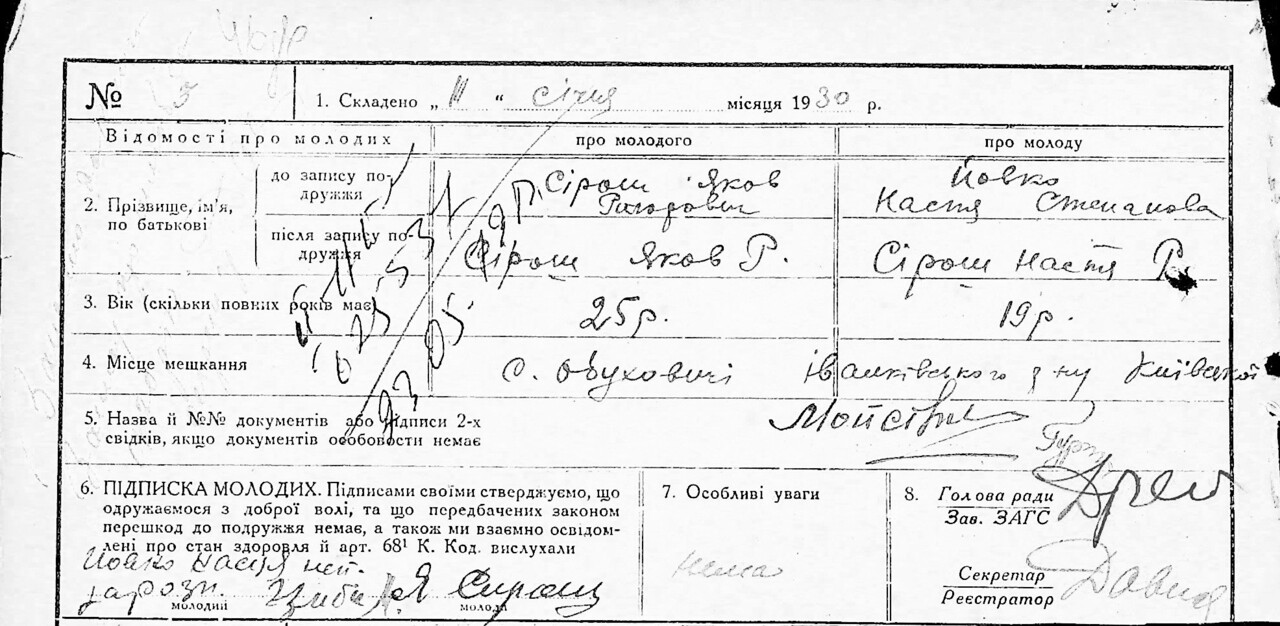 № 5
1. Складено „ 11 “ січня місяця 1930 р.
Відомості про молодих
про молодого
про молоду
2. Прізвище, ім'я, по батькові
до запису подружжя
Сірош Яков
Григорович
Йовко
Настя Степанова
після запису подружжя
Сірош Яков Р.
Сірош Настя Р.
3. Вік (скільки повних років має)
25 р.
19 р.
4. Місце мешкання
с. Обуховичі Іванківського р-ну Київської
5. Назва й №№ документів або підписи 2-х
свідків, якщо документів особовости немає
6. ПІДПИСКА МОЛОДИХ. Підписами своїми стверджуємо, що
одружаємося з доброї волі, та що передбачених законом
перешкод до подружжя немає, а також ми взаємно освідом-
лені про стан здоровля й арт. 68¹ К. Код. вислухали
Йовко Настя неп.
за розп. Я Сирош
молодий молода
7. Особливі уваги
нема
8. Голова ради
Зав. ЗАГС
Секретар
Реєстратор